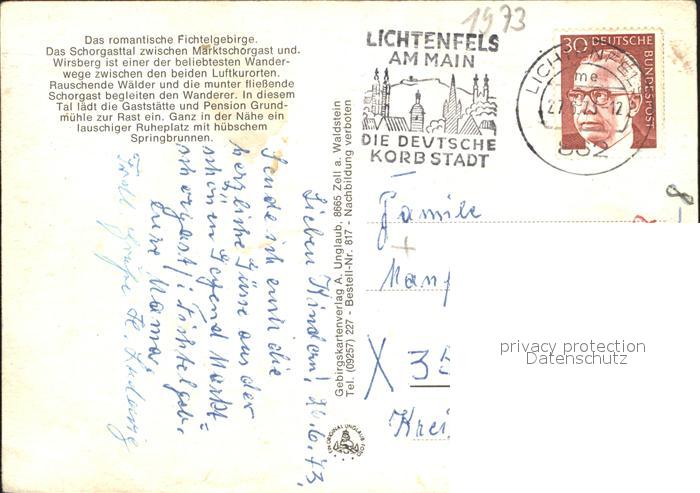 Das romantische Fichtelgebirge.
Das Schorgasttal zwischen Marktschorgast und.
Wirsberg ist einer der beliebtesten Wander-
wege zwischen den beiden Luftkurorten.
Rauschende Wälder und die munter fließende
Schorgast begleiten den Wanderer. In diesem
Tal lädt die Gaststätte und Pension Grund-
mühle zur Rast ein. Ganz in der Nähe ein
lauschiger Ruheplatz mit hübschem
Springbrunnen.
1973
LICHTENFELS
AM MAIN
DIE DEUTSCHE
KORBSTADT
LICHTENFELS
me
862
30 DEUTSCHE
BUNDESPOST
Gebirgskartenverlag A. Unglaub, 8665 Zell a. Waldstein
Tel. (09257) 227 - Bestell-Nr. 817 - Nachbildung verboten
Lieben Kindern! 26.6.73.
Sende ich euch die
herzliche Grüsse aus der
schönen Gegend Markt=
schorgast i. Fichtelgeb.
Eure Mama
Grüße
Familie
X 35
Krei
privacy protection
Datenschutz